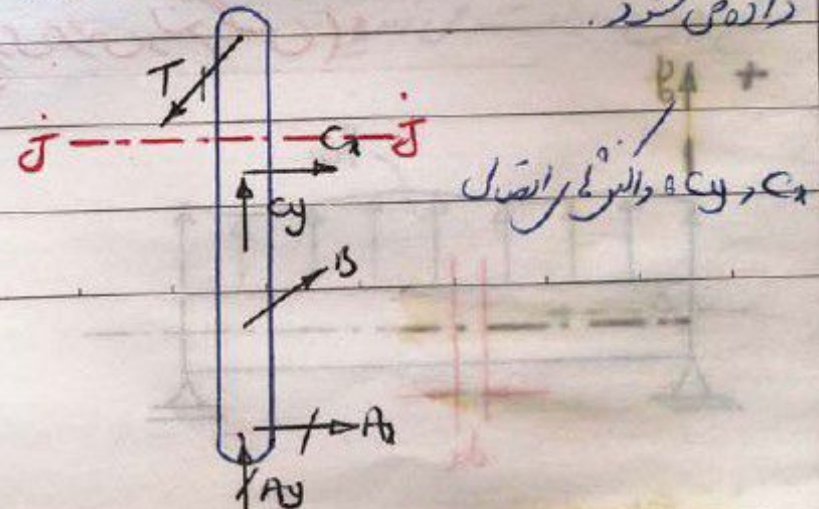 داده می شود.
T
J J
Cx
Cy
Cx و Cy : واکنش های اتصال
B
Ax
Ay